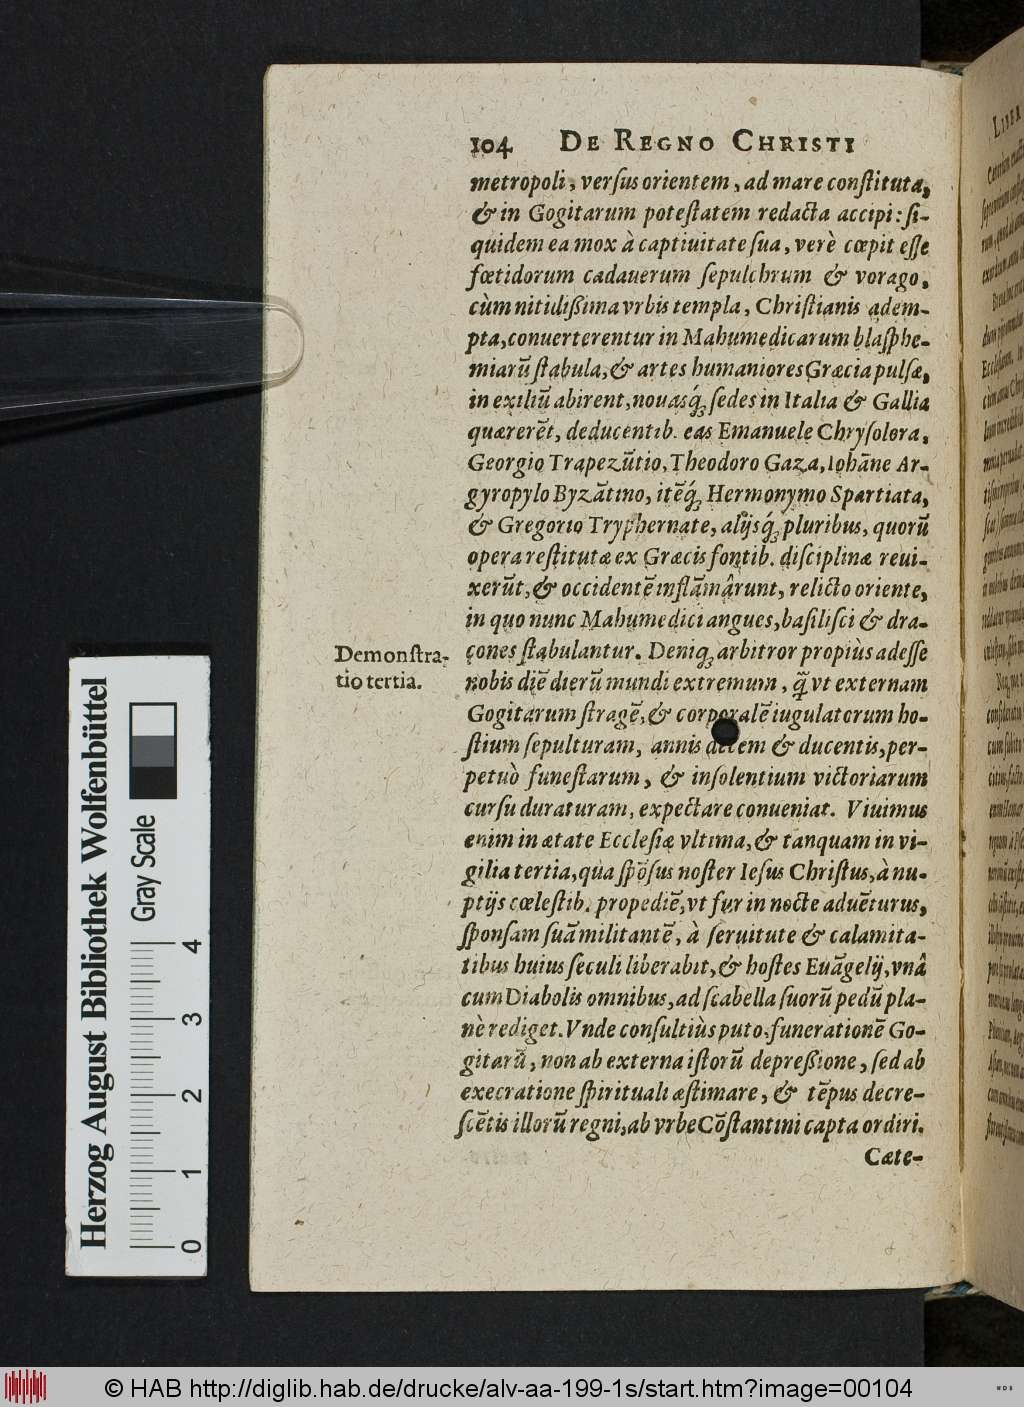 104 DE REGNO CHRISTI
metropoli, verſus orientem, ad mare conſtituta,
& in Gogitarum poteſtatem redacta accipi: ſi-
quidem ea mox à captiuitate ſua, verè cœpit eſſe
fœtidorum cadauerum ſepulchrum & vorago,
cùm nitidißima vrbis templa, Chriſtianis adem-
pta, conuerterentur in Mahumedicarum blaſphe-
miarũ ſtabula, & artes humaniores Græcia pulſæ,
in exiliũ abirent, nouasq́; ſedes in Italia & Gallia
quærerẽt, deducentib. eas Emanuele Chryſolora,
Georgio Trapezũtio, Theodoro Gaza, Iohãne Ar-
gyropylo Byzãtino, itẽq́; Hermonymo Spartiata,
& Gregorio Tryphernate, alijsq́; pluribus, quorũ
opera reſtitutæ ex Græcis fontib. diſciplinæ reui-
xerũt, & occidentẽ inflãmârunt, relicto oriente,
in quo nunc Mahumedici angues, baſiliſci & dra-
cones ſtabulantur. Deniq; arbitror propiùs adeſſe
nobis diẽ dierũ mundi extremum, q̃ vt externam
Gogitarum ſtragẽ, & corporalẽ iugulatorum ho-
ſtium ſepulturam, annis decem & ducentis, per-
petuò funeſtarum, & inſolentium victoriarum
curſu duraturam, expectare conueniat. Viuimus
enim in ætate Eccleſiæ vltima, & tanquam in vi-
gilia tertia, qua ſpõſus noſter Ieſus Chriſtus, à nu-
ptijs cœleſtib. propediẽ, vt fur in nocte aduẽturus,
ſponſam ſuã militantẽ, à ſeruitute & calamita-
tibus huius ſeculi liberabit, & hoſtes Euãgelij, vnâ
cum Diabolis omnibus, ad ſcabella ſuorũ pedũ pla-
nè rediget. Vnde conſultiùs puto, funerationẽ Go-
gitarũ, non ab externa iſtorũ depreßione, ſed ab
execratione ſpirituali æſtimare, & tẽpus decre-
ſcẽtis illorũ regni, ab vrbe Cõſtantini capta ordiri.
Cæte-
Demonſtra-
tio tertia.
Herzog August Bibliothek Wolfenbüttel
Gray Scale
0 1 2 3 4
LIBER
© HAB http://diglib.hab.de/drucke/alv-aa-199-1s/start.htm?image=00104